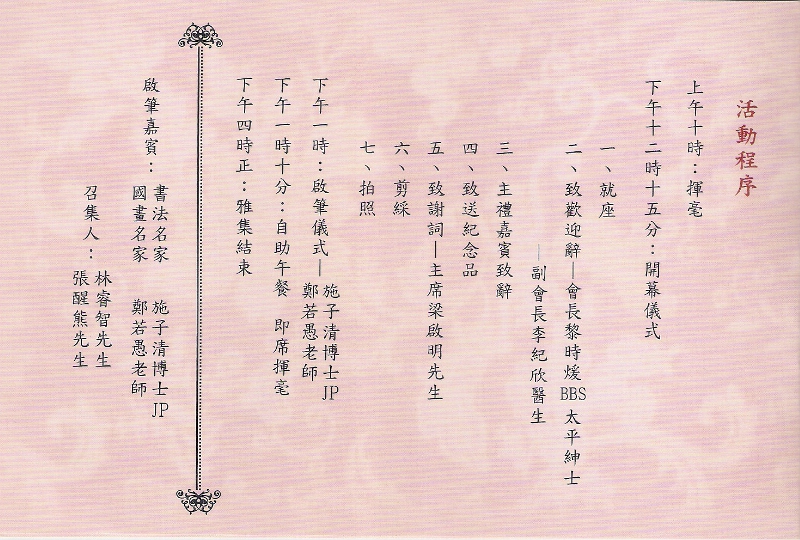 活動程序
上午十時：揮毫
下午十二時十五分：開幕儀式
一、就座
二、致歡迎辭—會長黎時煖BBS太平紳士
—副會長李紀欣醫生
三、主禮嘉賓致辭
四、致送紀念品
五、致謝詞—主席梁啟明先生
六、剪綵
七、拍照
下午一時：啟筆儀式—施子清博士JP
鄭若愚老師
下午一時十分：自助午餐 即席揮毫
下午四時正：雅集結束
啟筆嘉賓：書法名家 施子清博士JP
國畫名家 鄭若愚老師
召集人：林睿智先生
張醒熊先生